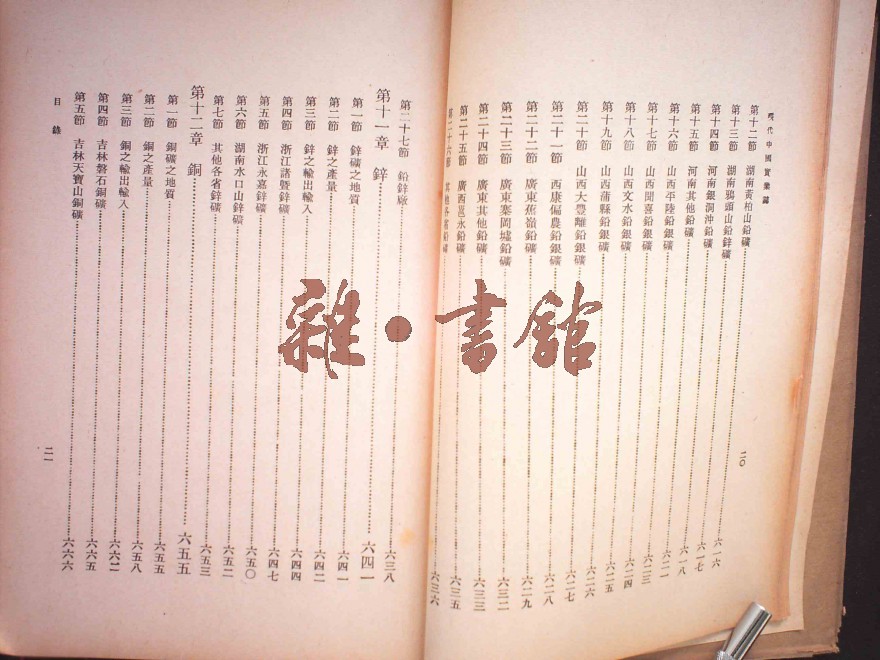 現代中國實業誌
第十二節 湖南黃柏山鉛礦 六一六
第十三節 湖南鴉頭山鉛鋅礦 六一七
第十四節 河南銀洞沖鉛礦 六一八
第十五節 河南其他鉛礦 六二一
第十六節 山西平陸鉛銀礦 六二三
第十七節 山西聞喜鉛銀礦 六二四
第十八節 山西文水鉛銀礦 六二五
第十九節 山西蒲縣鉛銀礦 六二六
第二十節 山西大豐雕鉛銀礦 六二七
第二十一節 西康偏農鉛銀礦 六二八
第二十二節 廣東蕉嶺鉛礦 六二九
第二十三節 廣東寨岡墟鉛礦 六三二
第二十四節 廣東其他鉛礦 六三三
第二十五節 廣西邕永鉛礦 六三五
第二十六節 其他各省鉛礦 六三六
二〇
第二十七節 鉛鋅廠 六三八
第十一章 鋅 六四一
第一節 鋅礦之地質 六四一
第二節 鋅之產量 六四二
第三節 鋅之輸出輸入 六四四
第四節 浙江諸暨鋅礦 六四七
第五節 浙江永嘉鋅礦 六五〇
第六節 湖南水口山鋅礦 六五二
第七節 其他各省鋅礦 六五三
第十二章 銅 六五五
第一節 銅礦之地質 六五五
第二節 銅之產量 六五八
第三節 銅之輸出輸入 六六二
第四節 吉林磐石銅礦 六六五
第五節 吉林天寶山銅礦 六六六
目錄
二一
雜·書館